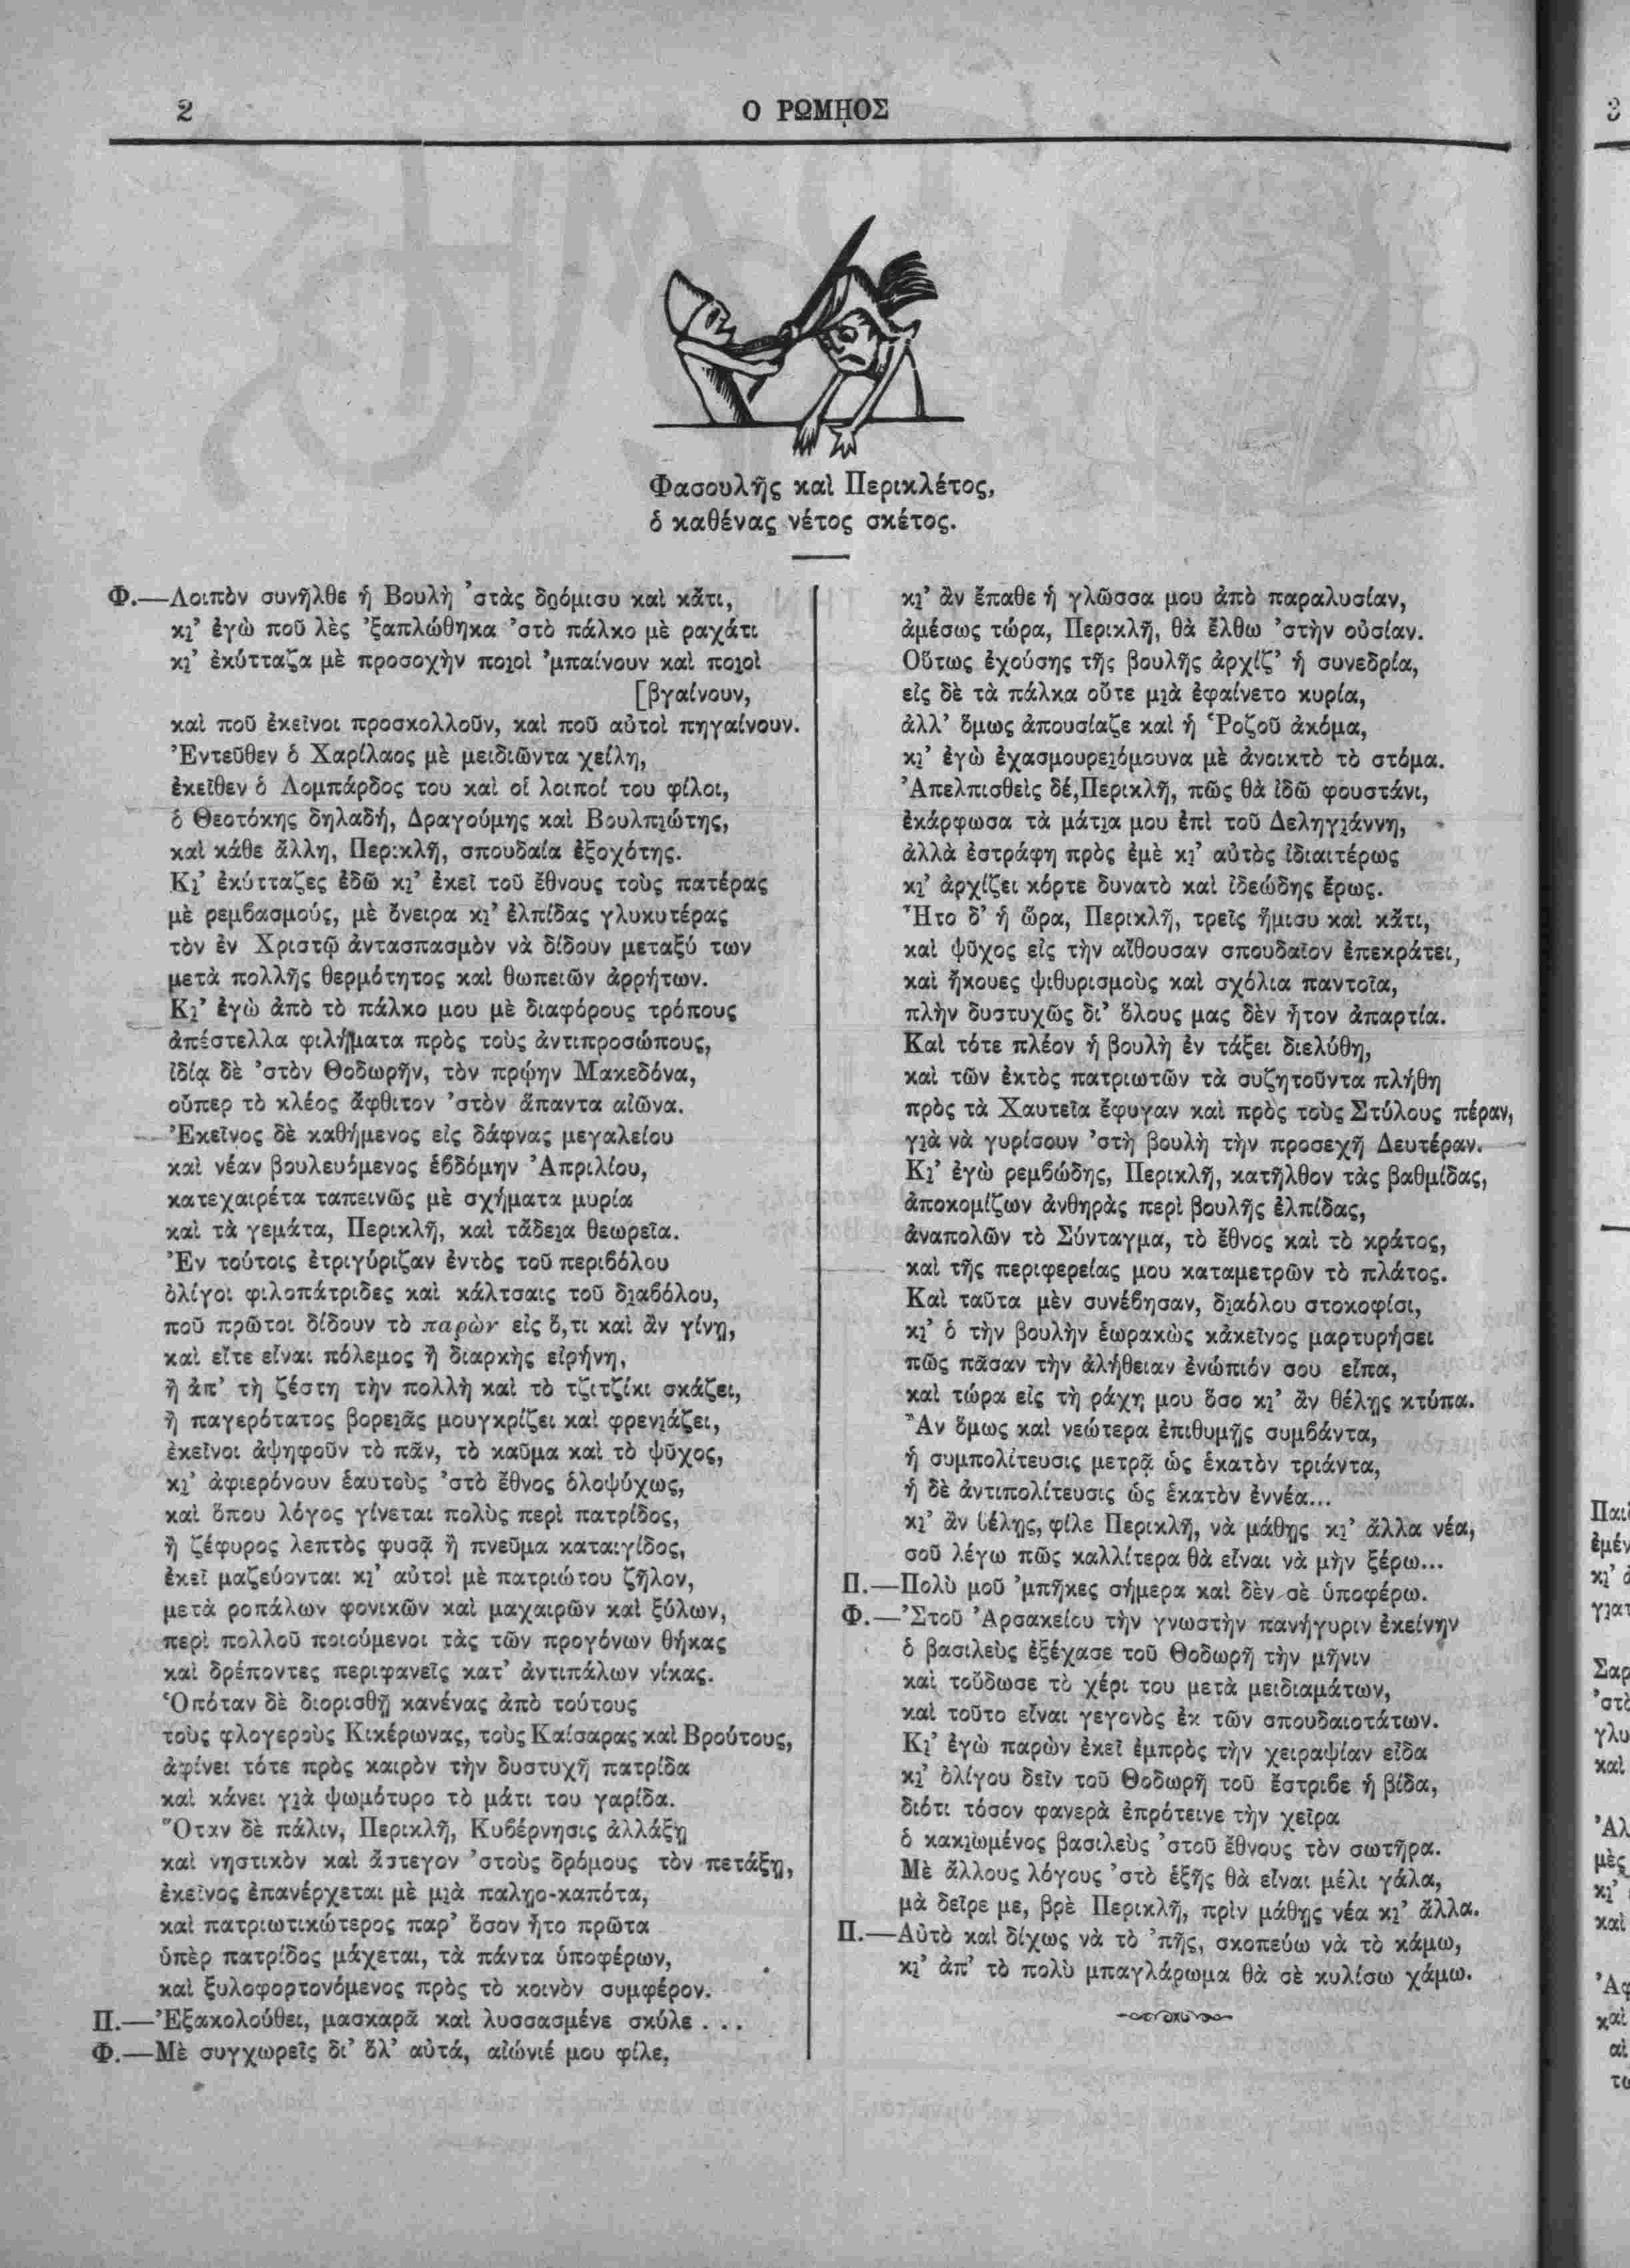 2
Ο ΡΩΜΗΟΣ
Φασουλῆς καὶ Περικλέτος,
ὁ καθένας νέτος σκέτος.
Φ.—Λοιπὸν συνῆλθε ἡ Βουλὴ ’στὰς δρόμισυ καὶ κἄτι,
κι̯’ ἐγὼ ποῦ λὲς ’ξαπλώθηκα ’στὸ πάλκο μὲ ραχάτι
κι̯’ ἐκύτταζα μὲ προσοχὴν ποι̯οὶ ’μπαίνουν καὶ ποι̯οὶ
[βγαίνουν,
καὶ ποῦ ἐκεῖνοι προσκολλοῦν, καὶ ποῦ αὐτοὶ πηγαίνουν.
Ἐντεῦθεν ὁ Χαρίλαος μὲ μειδιῶντα χείλη,
ἐκεῖθεν ὁ Λομπάρδος του καὶ οἱ λοιποί του φίλοι,
ὁ Θεοτόκης δηλαδή, Δραγούμης καὶ Βουλπι̯ώτης,
καὶ κάθε ἄλλη, Περικλῆ, σπουδαία ἐξοχότης.
Κι̯’ ἐκύτταζες ἐδῶ κι̯’ ἐκεῖ τοῦ ἔθνους τοὺς πατέρας
μὲ ρεμβασμούς, μὲ ὄνειρα κι̯’ ἐλπίδας γλυκυτέρας
τὸν ἐν Χριστῷ ἀντασπασμὸν νὰ δίδουν μεταξύ των
μετὰ πολλῆς θερμότητος καὶ θωπειῶν ἀρρήτων.
Κι̯’ ἐγὼ ἀπὸ τὸ πάλκο μου μὲ διαφόρους τρόπους
ἀπέστελλα φιλήματα πρὸς τοὺς ἀντιπροσώπους,
ἰδίᾳ δὲ ’στὸν Θοδωρῆν, τὸν πρῴην Μακεδόνα,
οὗπερ τὸ κλέος ἄφθιτον ’στὸν ἅπαντα αἰῶνα.
Ἐκεῖνος δὲ καθήμενος εἰς δάφνας μεγαλείου
καὶ νέαν βουλευόμενος ἑβδόμην Ἀπριλίου,
κατεχαιρέτα ταπεινῶς μὲ σχήματα μυρία
καὶ τὰ γεμάτα, Περικλῆ, καὶ τἄδει̯α θεωρεῖα.
Ἐν τούτοις ἐτριγύριζαν ἐντὸς τοῦ περιβόλου
ὀλίγοι φιλοπάτριδες καὶ κάλτσαις τοῦ δι̯αβόλου,
ποῦ πρῶτοι δίδουν τὸ παρὼν εἰς ὅ,τι καὶ ἂν γίνῃ,
καὶ εἴτε εἶναι πόλεμος ἢ διαρκὴς εἰρήνη,
ἢ ἀπ’ τὴ ζέστη τὴν πολλὴ καὶ τὸ τζιτζίκι σκάζει,
ἢ παγερότατος βορει̯ᾶς μουγκρίζει καὶ φρενι̯άζει,
ἐκεῖνοι ἀψηφοῦν τὸ πᾶν, τὸ καῦμα καὶ τὸ ψῦχος,
κι̯’ ἀφιερόνουν ἑαυτοὺς ’στὸ ἔθνος ὁλοψύχως,
καὶ ὅπου λόγος γίνεται πολὺς περὶ πατρίδος,
ἢ ζέφυρος λεπτὸς φυσᾷ ἢ πνεῦμα καταιγίδος,
ἐκεῖ μαζεύονται κι̯’ αὐτοὶ μὲ πατριώτου ζῆλον,
μετὰ ροπάλων φονικῶν καὶ μαχαιρῶν καὶ ξύλων,
περὶ πολλοῦ ποιούμενοι τὰς τῶν προγόνων θήκας
καὶ δρέποντες περιφανεῖς κατ’ ἀντιπάλων νίκας.
Ὁπόταν δὲ διορισθῇ κανένας ἀπὸ τούτους
τοὺς φλογεροὺς Κικέρωνας, τοὺς Καίσαρας καὶ Βρούτους,
ἀφίνει τότε πρὸς καιρὸν τὴν δυστυχῆ πατρίδα
καὶ κάνει γι̯ὰ ψωμότυρο τὸ μάτι του γαρίδα.
Ὅταν δὲ πάλιν, Περικλῆ, Κυβέρνησις ἀλλάξῃ
καὶ νηστικὸν καὶ ἄστεγον ’στοὺς δρόμους τὸν πετάξῃ,
ἐκεῖνος ἐπανέρχεται μὲ μι̯ὰ παλῃο-καπότα,
καὶ πατριωτικώτερος παρ’ ὅσον ἦτο πρῶτα
ὑπὲρ πατρίδος μάχεται, τὰ πάντα ὑποφέρων,
καὶ ξυλοφορτονόμενος πρὸς τὸ κοινὸν συμφέρον.
Π.—Ἐξακολούθει, μασκαρᾶ καὶ λυσσασμένε σκύλε . . .
Φ.—Μὲ συγχωρεῖς δι’ ὅλ’ αὐτά, αἰώνιέ μου φίλε,
κι̯’ ἂν ἔπαθε ἡ γλῶσσα μου ἀπὸ παραλυσίαν,
ἀμέσως τώρα, Περικλῆ, θὰ ἔλθω ’στὴν οὐσίαν.
Οὕτως ἐχούσης τῆς βουλῆς ἀρχίζ’ ἡ συνεδρία,
εἰς δὲ τὰ πάλκα οὔτε μι̯ὰ ἐφαίνετο κυρία,
ἀλλ’ ὅμως ἀπουσίαζε καὶ ἡ Ῥοζοῦ ἀκόμα,
κι̯’ ἐγὼ ἐχασμουρει̯όμουνα μὲ ἀνοικτὸ τὸ στόμα.
Ἀπελπισθεὶς δέ,Περικλῆ, πῶς θὰ ἰδῶ φουστάνι,
ἐκάρφωσα τὰ μάτι̯α μου ἐπὶ τοῦ Δεληγι̯άννη,
ἀλλὰ ἐστράφη πρὸς ἐμὲ κι̯’ αὐτὸς ἰδιαιτέρως
κι̯’ ἀρχίζει κόρτε δυνατὸ καὶ ἰδεώδης ἔρως.
Ἦτο δ’ ἡ ὥρα, Περικλῆ, τρεῖς ἥμισυ καὶ κἄτι,
καὶ ψῦχος εἰς τὴν αἴθουσαν σπουδαῖον ἐπεκράτει,
καὶ ἤκουες ψιθυρισμοὺς καὶ σχόλια παντοῖα,
πλὴν δυστυχῶς δι’ ὅλους μας δὲν ἦτον ἀπαρτία.
Καὶ τότε πλέον ἡ βουλὴ ἐν τάξει διελύθη,
καὶ τῶν ἐκτὸς πατριωτῶν τὰ συζητοῦντα πλήθη
πρὸς τὰ Χαυτεῖα ἔφυγαν καὶ πρὸς τοὺς Στύλους πέραν,
γι̯ὰ νὰ γυρίσουν ’στὴ βουλὴ τὴν προσεχῆ Δευτέραν.
Κι̯’ ἐγὼ ρεμβώδης, Περικλῆ, κατῆλθον τὰς βαθμίδας,
ἀποκομίζων ἀνθηρὰς περὶ βουλῆς ἐλπίδας,
ἀναπολῶν τὸ Σύνταγμα, τὸ ἔθνος καὶ τὸ κράτος,
καὶ τῆς περιφερείας μου καταμετρῶν τὸ πλάτος.
Καὶ ταῦτα μὲν συνέβησαν, δι̯αόλου στοκοφίσι,
κι̯’ ὁ τὴν βουλὴν ἑωρακὼς κἀκεῖνος μαρτυρήσει
πῶς πᾶσαν τὴν ἀλήθειαν ἐνώπιόν σου εἶπα,
καὶ τώρα εἰς τὴ ράχη μου ὅσο κι̯’ ἂν θέλῃς κτύπα.
Ἂν ὅμως καὶ νεώτερα ἐπιθυμῇς συμβάντα,
ἡ συμπολίτευσις μετρᾷ ὡς ἑκατὸν τριάντα,
ἡ δὲ ἀντιπολίτευσις ὡς ἑκατὸν ἐννέα...
κι̯’ ἂν θέλῃς, φίλε Περικλῆ, νὰ μάθῃς κι̯’ ἄλλα νέα,
σοῦ λέγω πῶς καλλίτερα θὰ εἶναι νὰ μὴν ξέρω...
Π.—Πολὺ μοῦ ’μπῆκες σήμερα καὶ δὲν σὲ ὑποφέρω.
Φ.—’Στοῦ Ἀρσακείου τὴν γνωστὴν πανήγυριν ἐκείνην
ὁ βασιλεὺς ἐξέχασε τοῦ Θοδωρῆ τὴν μῆνιν
καὶ τοὔδωσε τὸ χέρι του μετὰ μειδιαμάτων,
καὶ τοῦτο εἶναι γεγονὸς ἐκ τῶν σπουδαιοτάτων.
Κι̯’ ἐγὼ παρὼν ἐκεῖ ἐμπρὸς τὴν χειραψίαν εἶδα
κι̯’ ὀλίγου δεῖν τοῦ Θοδωρῆ τοῦ ἔστριβε ἡ βίδα,
διότι τόσον φανερὰ ἐπρότεινε τὴν χεῖρα
ὁ κακι̯ωμένος βασιλεὺς ’στοῦ ἔθνους τὸν σωτῆρα.
Μὲ ἄλλους λόγους ’στὸ ἑξῆς θὰ εἶναι μέλι γάλα,
μὰ δεῖρε με, βρὲ Περικλῆ, πρὶν μάθῃς νέα κι̯’ ἄλλα.
Π.—Αὐτὸ καὶ δίχως νὰ τὸ ’πῇς, σκοπεύω νὰ τὸ κάμω,
κι̯’ ἀπ’ τὸ πολὺ μπαγλάρωμα θὰ σὲ κυλίσω χάμω.
3